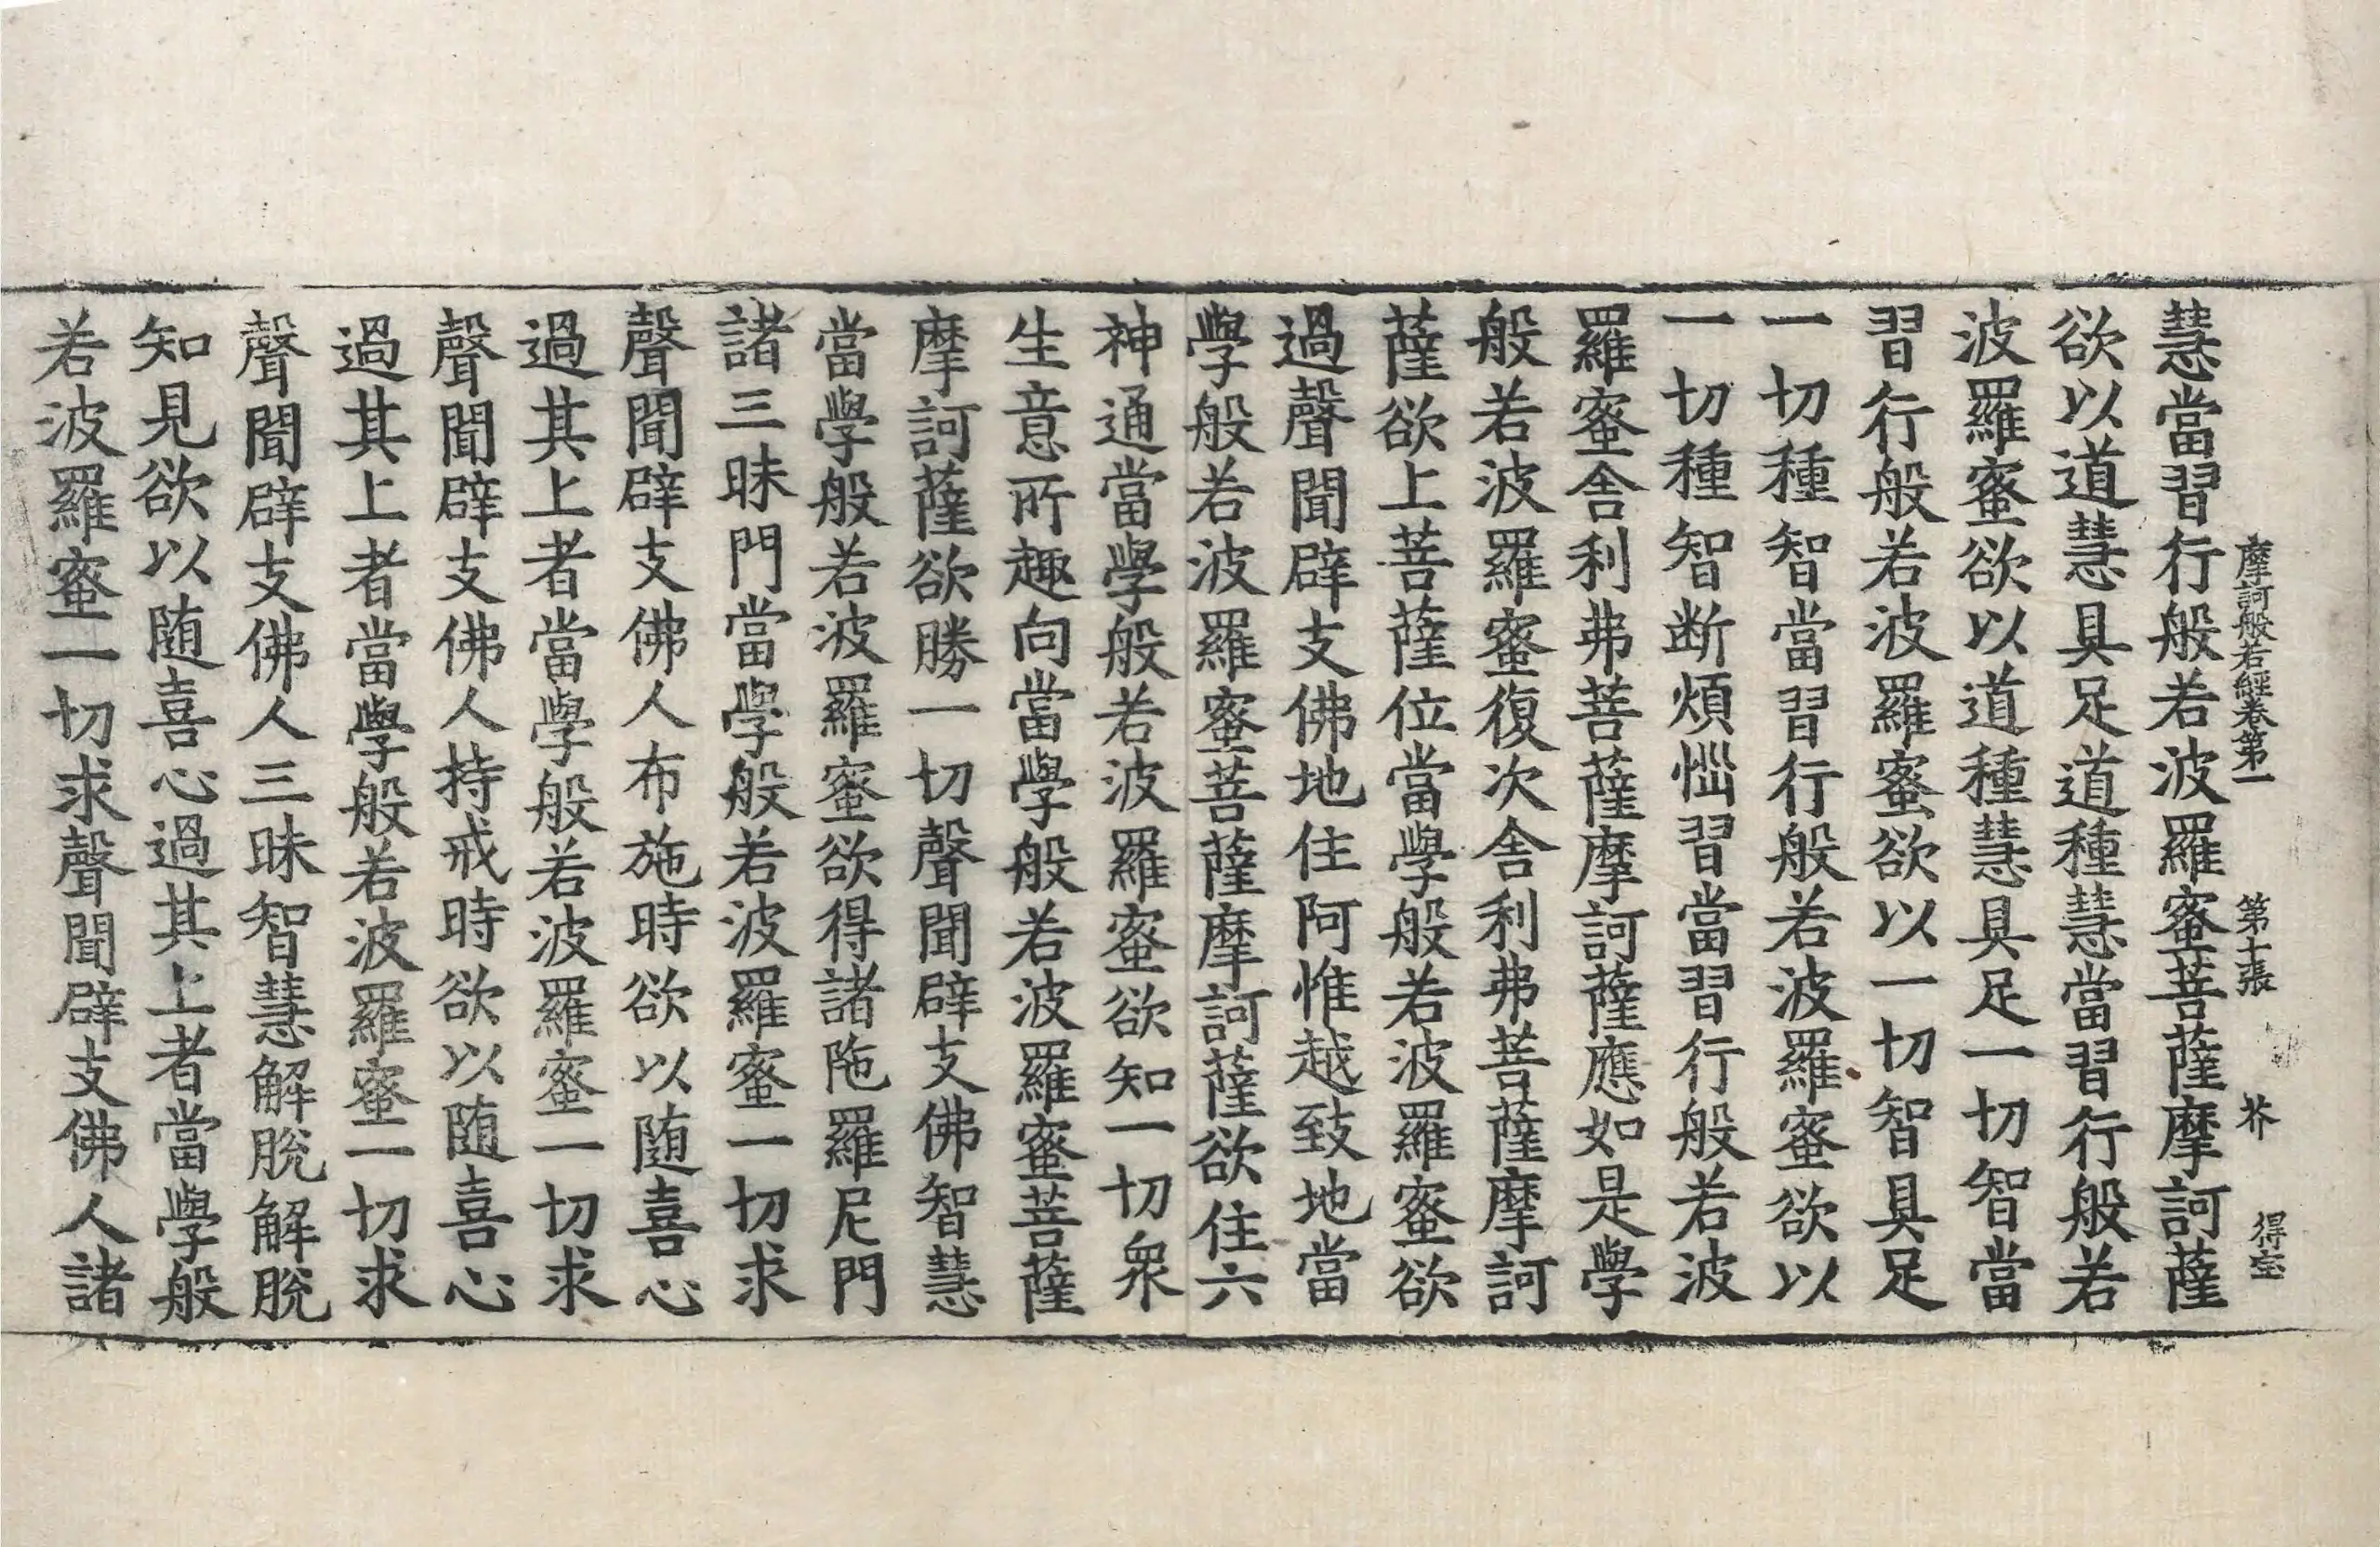 摩訶般若經卷第一 第十張 芥 得
慧當習行般若波羅蜜菩薩摩訶薩
欲以道慧具足道種慧當習行般若
波羅蜜欲以道種慧具足一切智當
習行般若波羅蜜欲以一切智具足
一切種智當習行般若波羅蜜欲以
一切種智断煩惱習當習行般若波
羅蜜舍利弗菩薩摩訶薩應如是學
般若波羅蜜復次舍利弗菩薩摩訶
薩欲上菩薩位當學般若波羅蜜欲
過聲聞辟支佛地住阿惟越致地當
學般若波羅蜜菩薩摩訶薩欲住六
神通當學般若波羅蜜欲知一切衆
生意所趣向當學般若波羅蜜菩薩
摩訶薩欲勝一切聲聞辟支佛智慧
當學般若波羅蜜欲得諸陁羅尼門
諸三昧門當學般若波羅蜜一切求
聲聞辟支佛人布施時欲以随喜心
過其上者當學般若波羅蜜一切求
聲聞辟支佛人持戒時欲以随喜心
過其上者當學般若波羅蜜一切求
聲聞辟支佛人三昧智慧解脫解脫
知見欲以随喜心過其上者當學般
若波羅蜜一切求聲聞辟支佛人諸